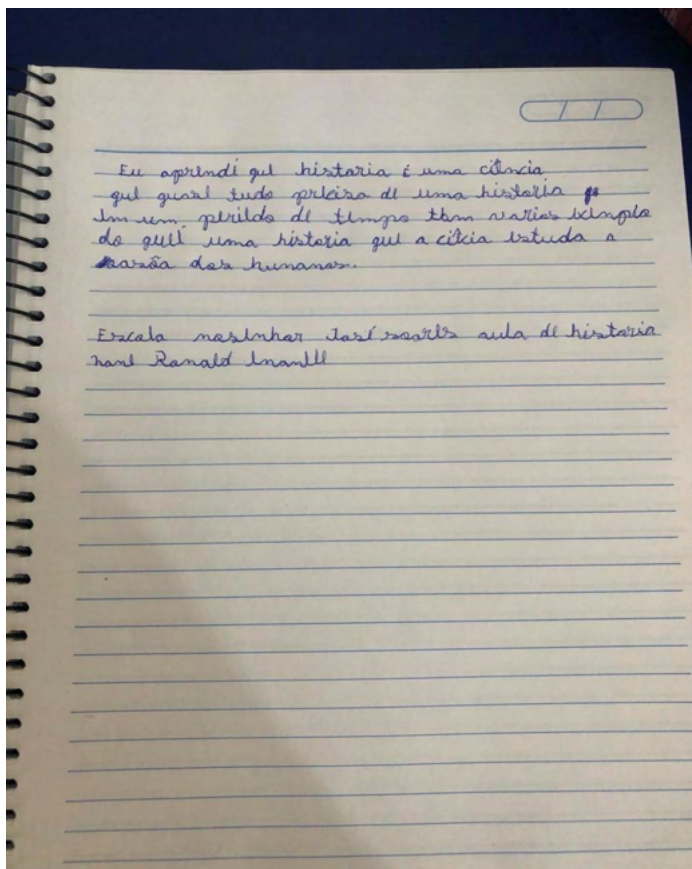 Eu aprendi que historia é uma ciência
que quasi tudo precisa de uma historia
em um perildo de tempo tbm varios exemplo
do que é uma historia que a cikia estuda a
dos humanos.
Escola José soares aula de historia
Ronald